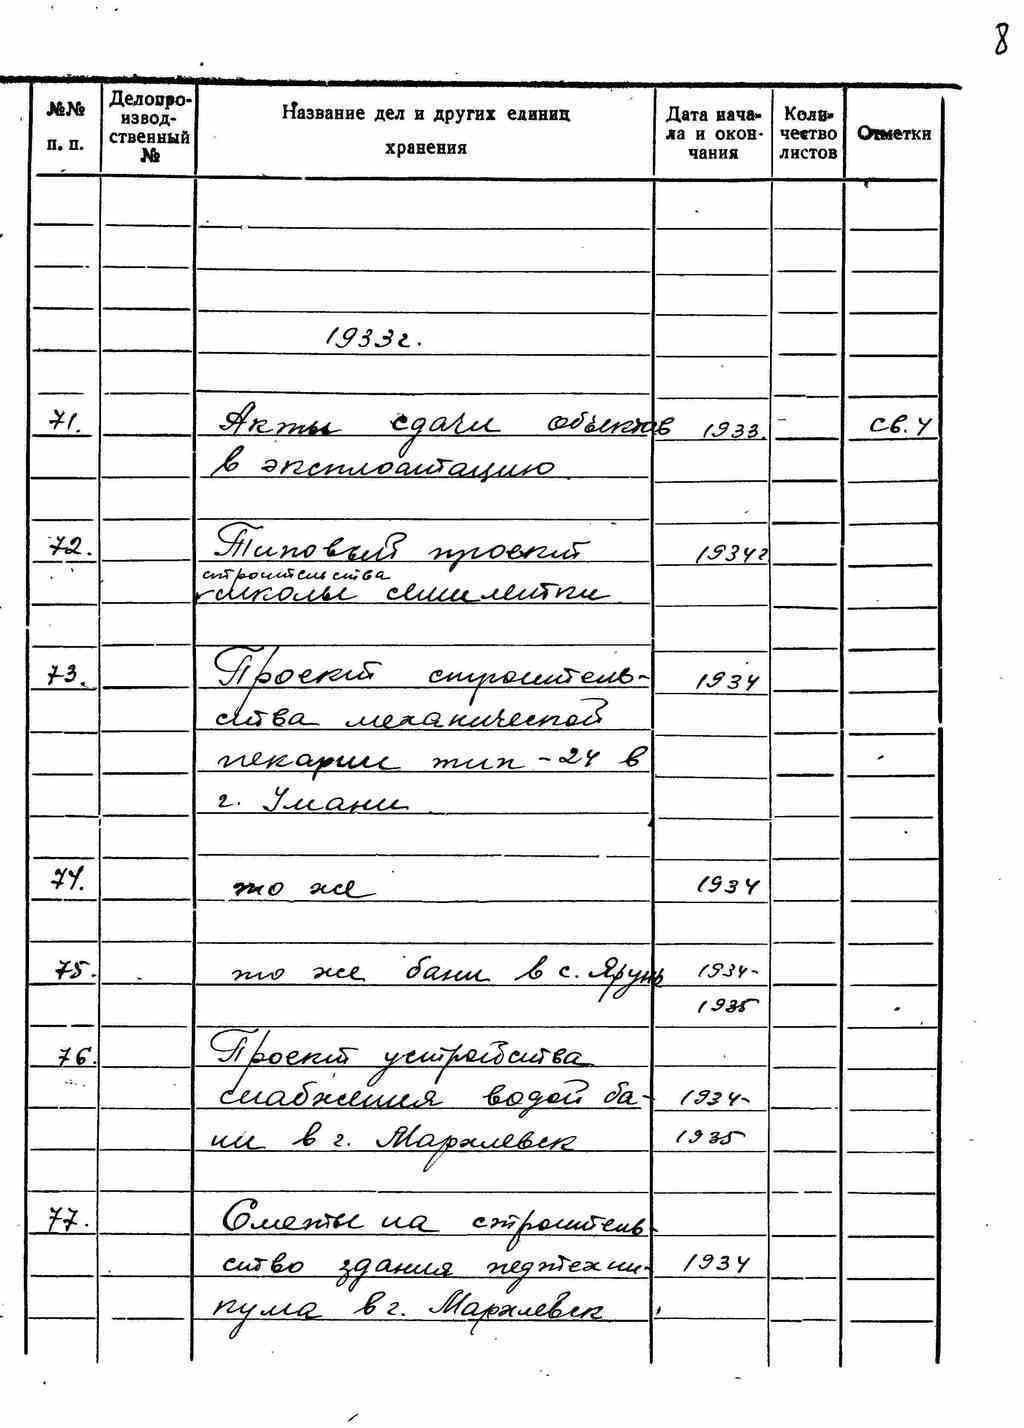 8
№№ п. п. Делопроизводственный № Название дел и других единиц хранения Дата начала и окончания Количество листов Отметки
1933г.
71. Акты сдачи объектов 1933. - св. 4
в эксплоатацию
72. Типовый проект 1934г
строительства
школы семилетки
73. Проект строитель- 1934
ства механической
пекарни тип - 24 в
г. Умани
74. то же 1934
75. то же бани в с. Ярунь 1934-
1935
76. Проект устройства
снабжения водой ба- 1934-
ни в г. Мархлевск 1935
77. Сметы на строитель-
ство здания педтехни- 1934
кума в г. Мархлевск